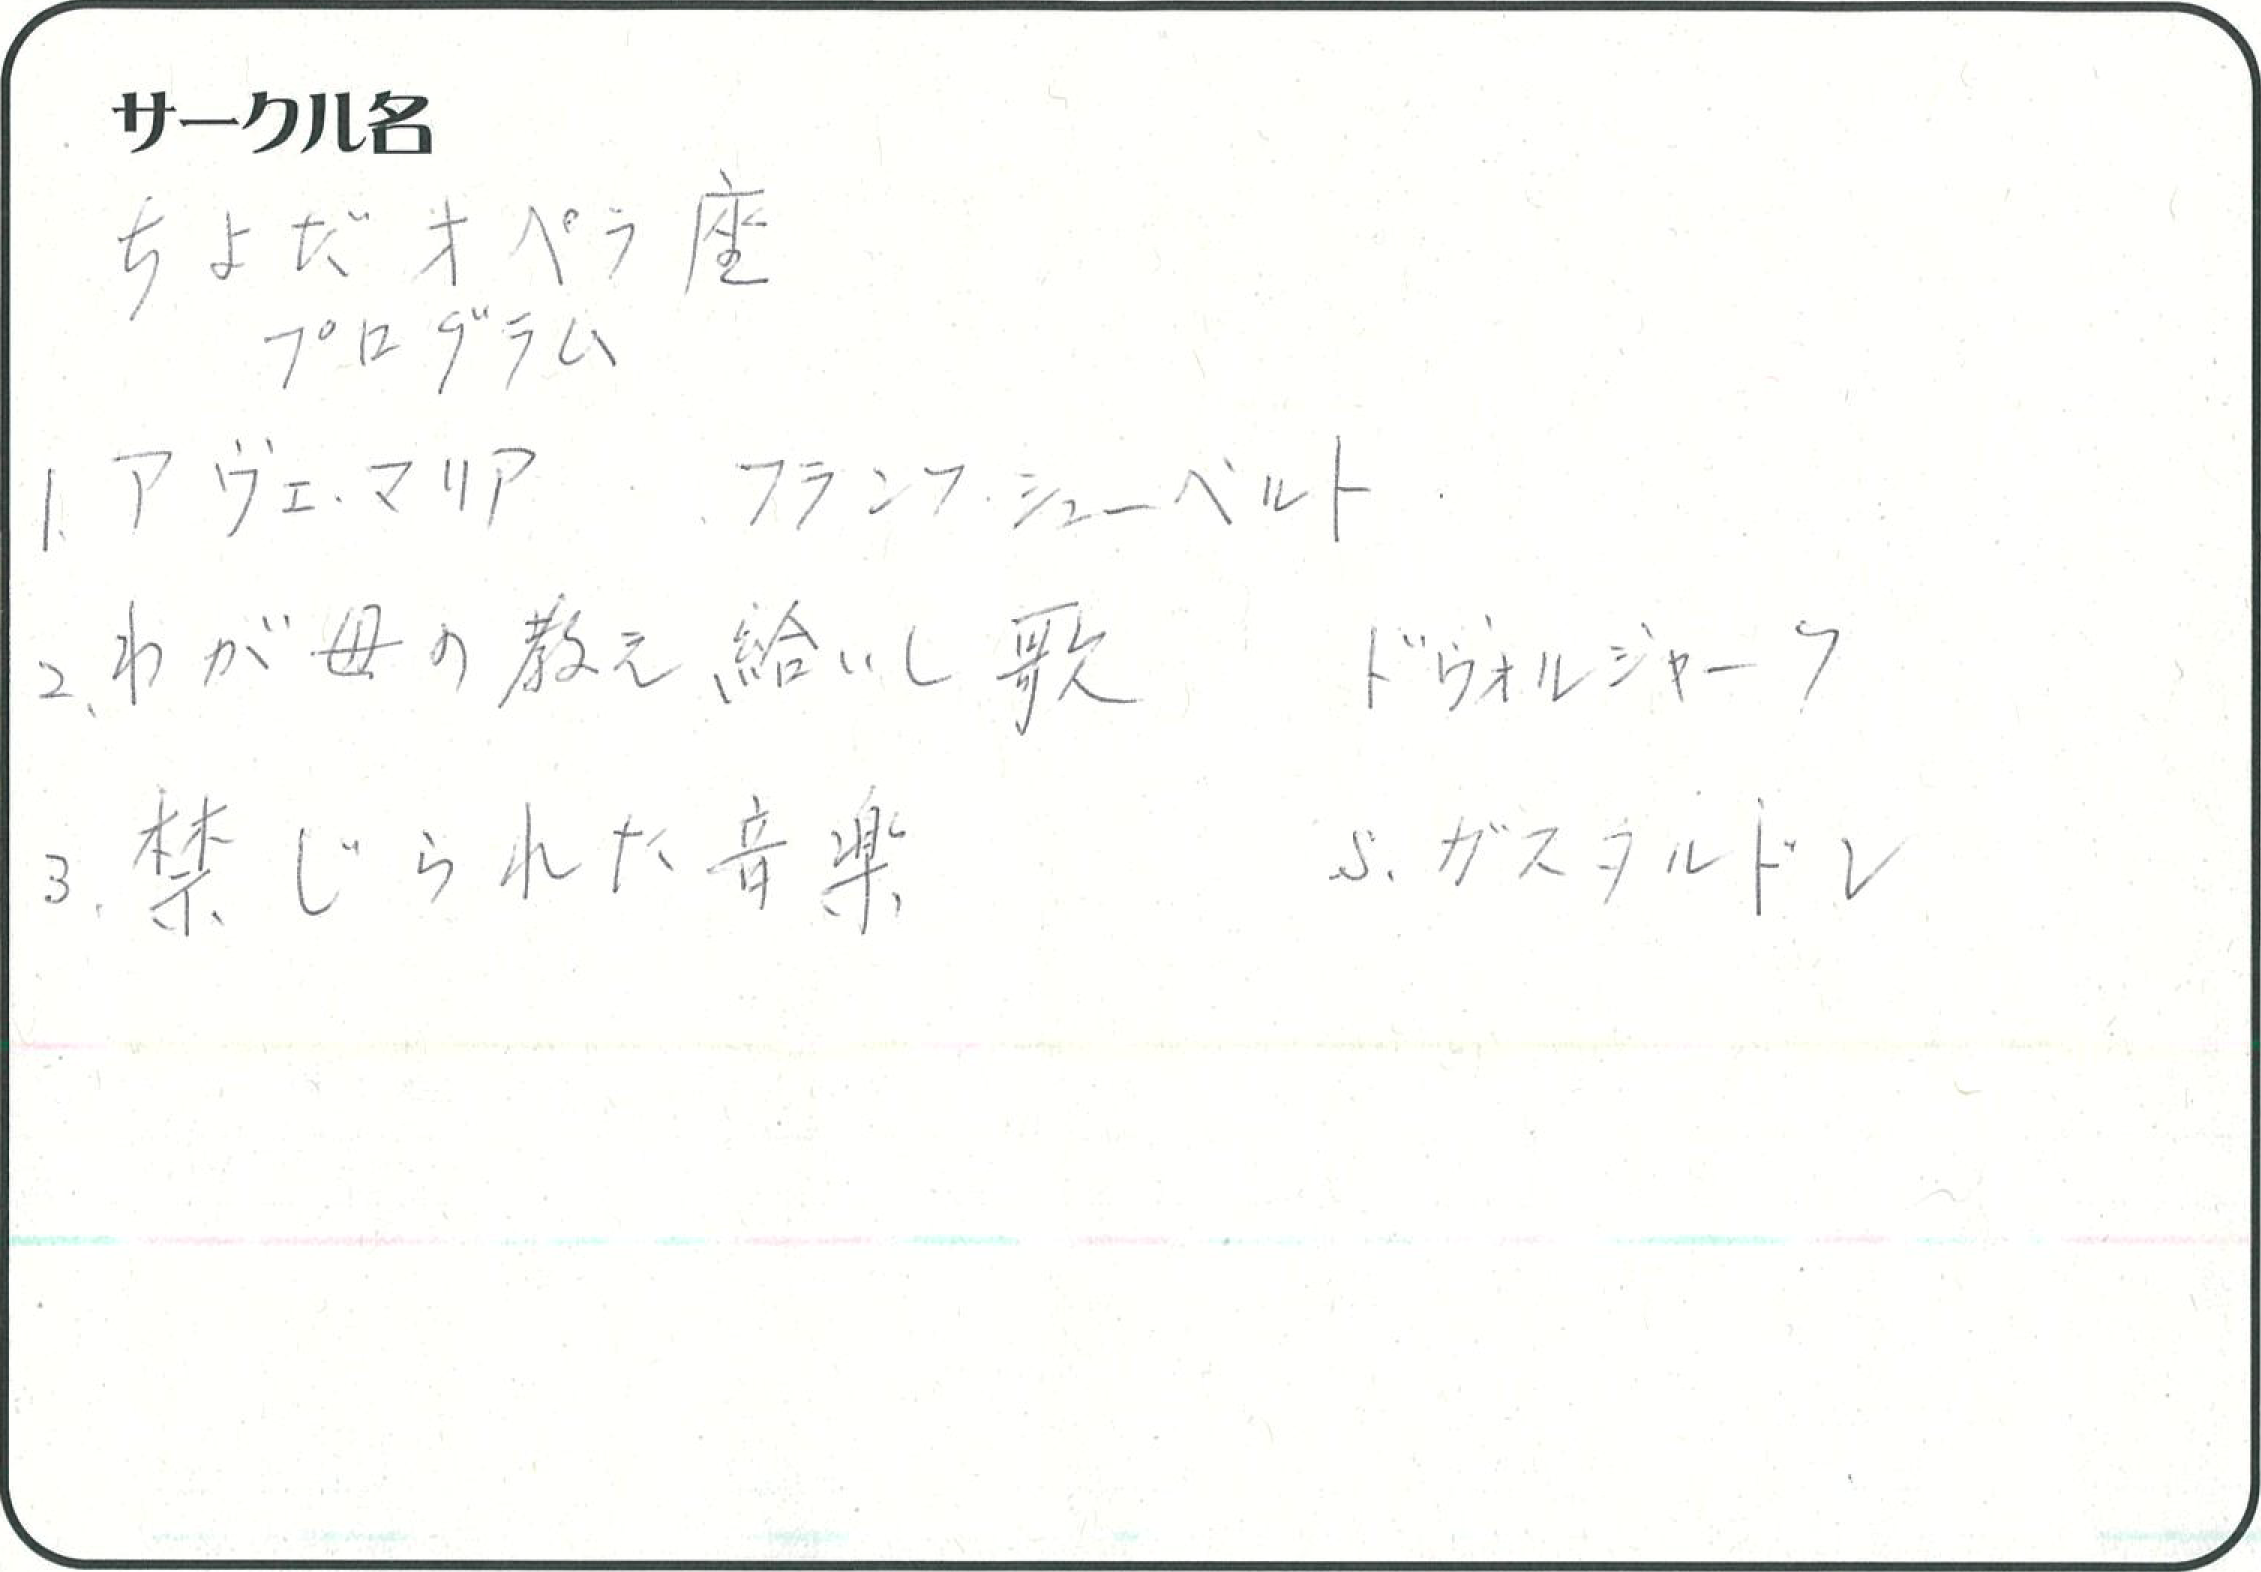 サークル名
ちよだオペラ座
プログラム
1. アヴェ・マリア フランツ・シューベルト
2. わが母の教え給いし歌 ドヴォルジャーク
3. 禁じられた音楽 S. ガスタルドン